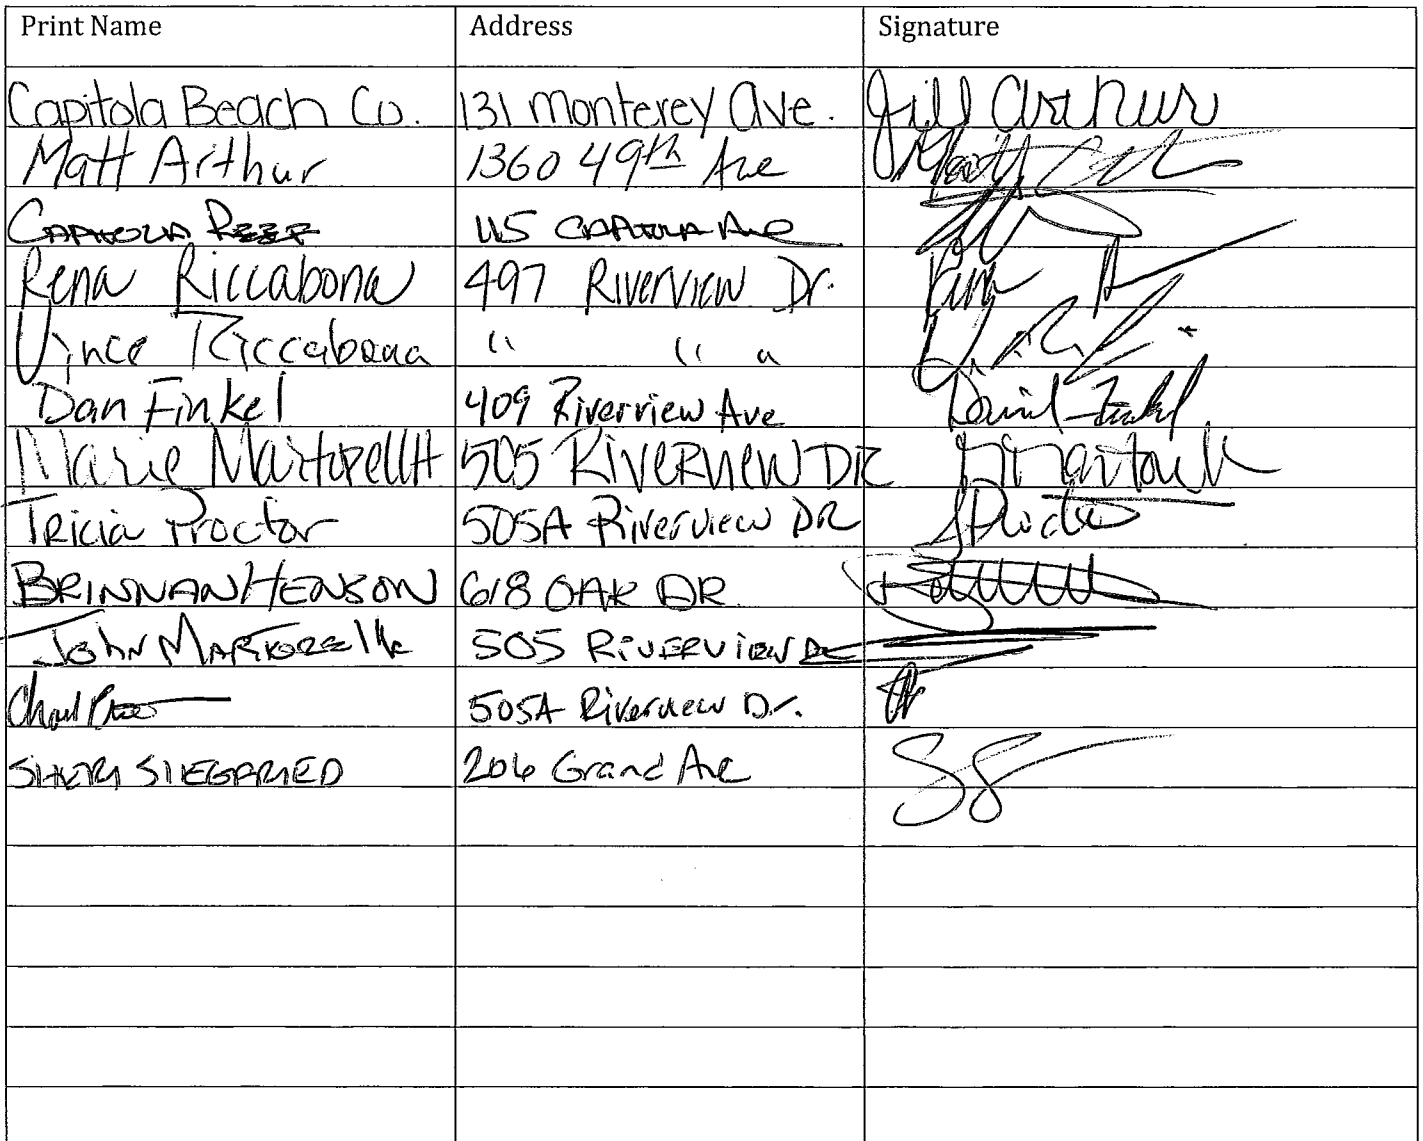 Print Name Address Signature
Capitola Beach Co. 131 Monterey Ave. Jill Arthur
Matt Arthur 1360 49th Ave
Capitola Reef 115 Capitola Ave
Rena Riccabona 497 Riverview Dr.
Vince Riccabona " " "
Dan Finkel 409 Riverview Ave
Marie Martorella 505 Riverview Dr
Tricia Proctor 505A Riverview DR
BRINNAN HENSON 618 OAK DR
John Martorella 505 Riverview Dr
505A Riverview Dr.
SHERI SIEGFRIED 206 Grand Ave